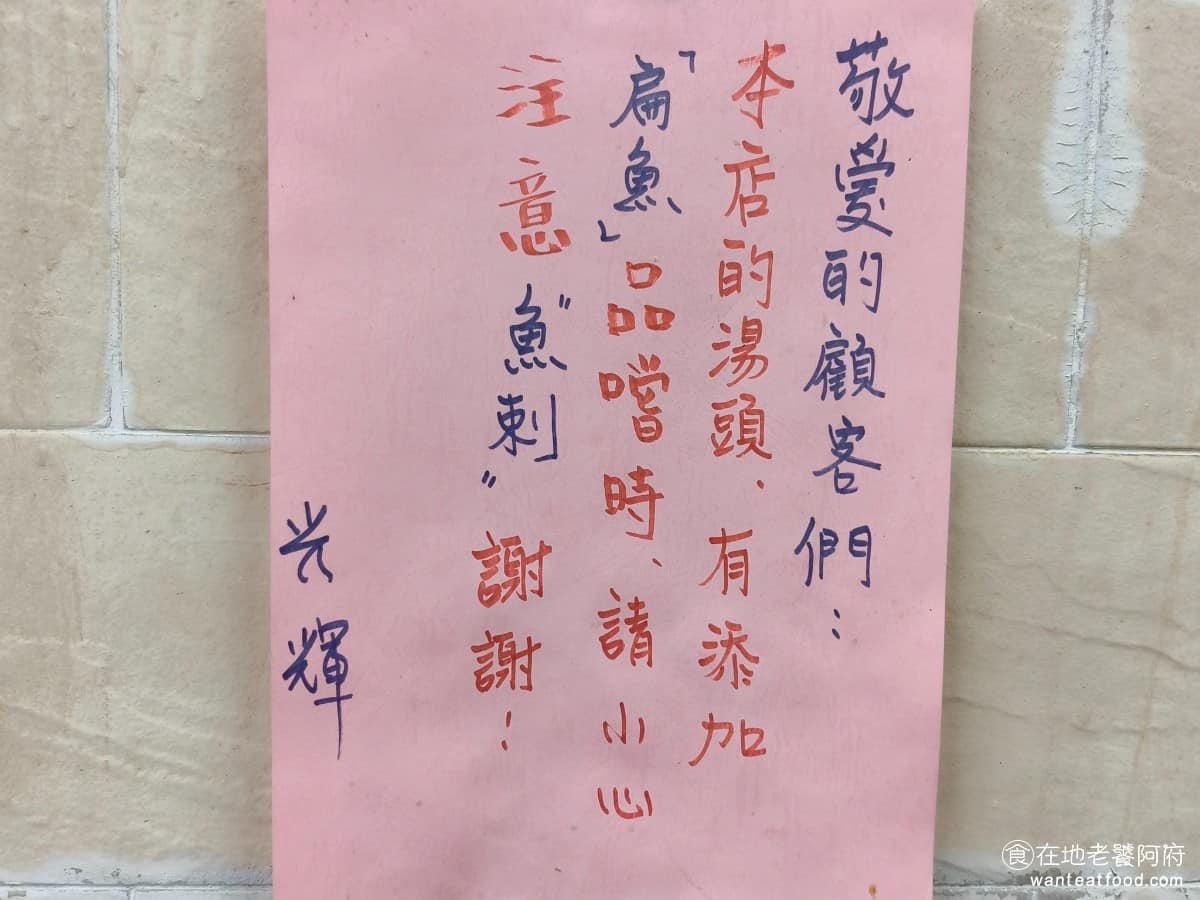 敬愛的顧客們：
本店的湯頭、有添加
「扁魚」品嚐時、請小心
注意"魚刺"謝謝！
光輝
食在地老饕阿府
wanteatfood.com